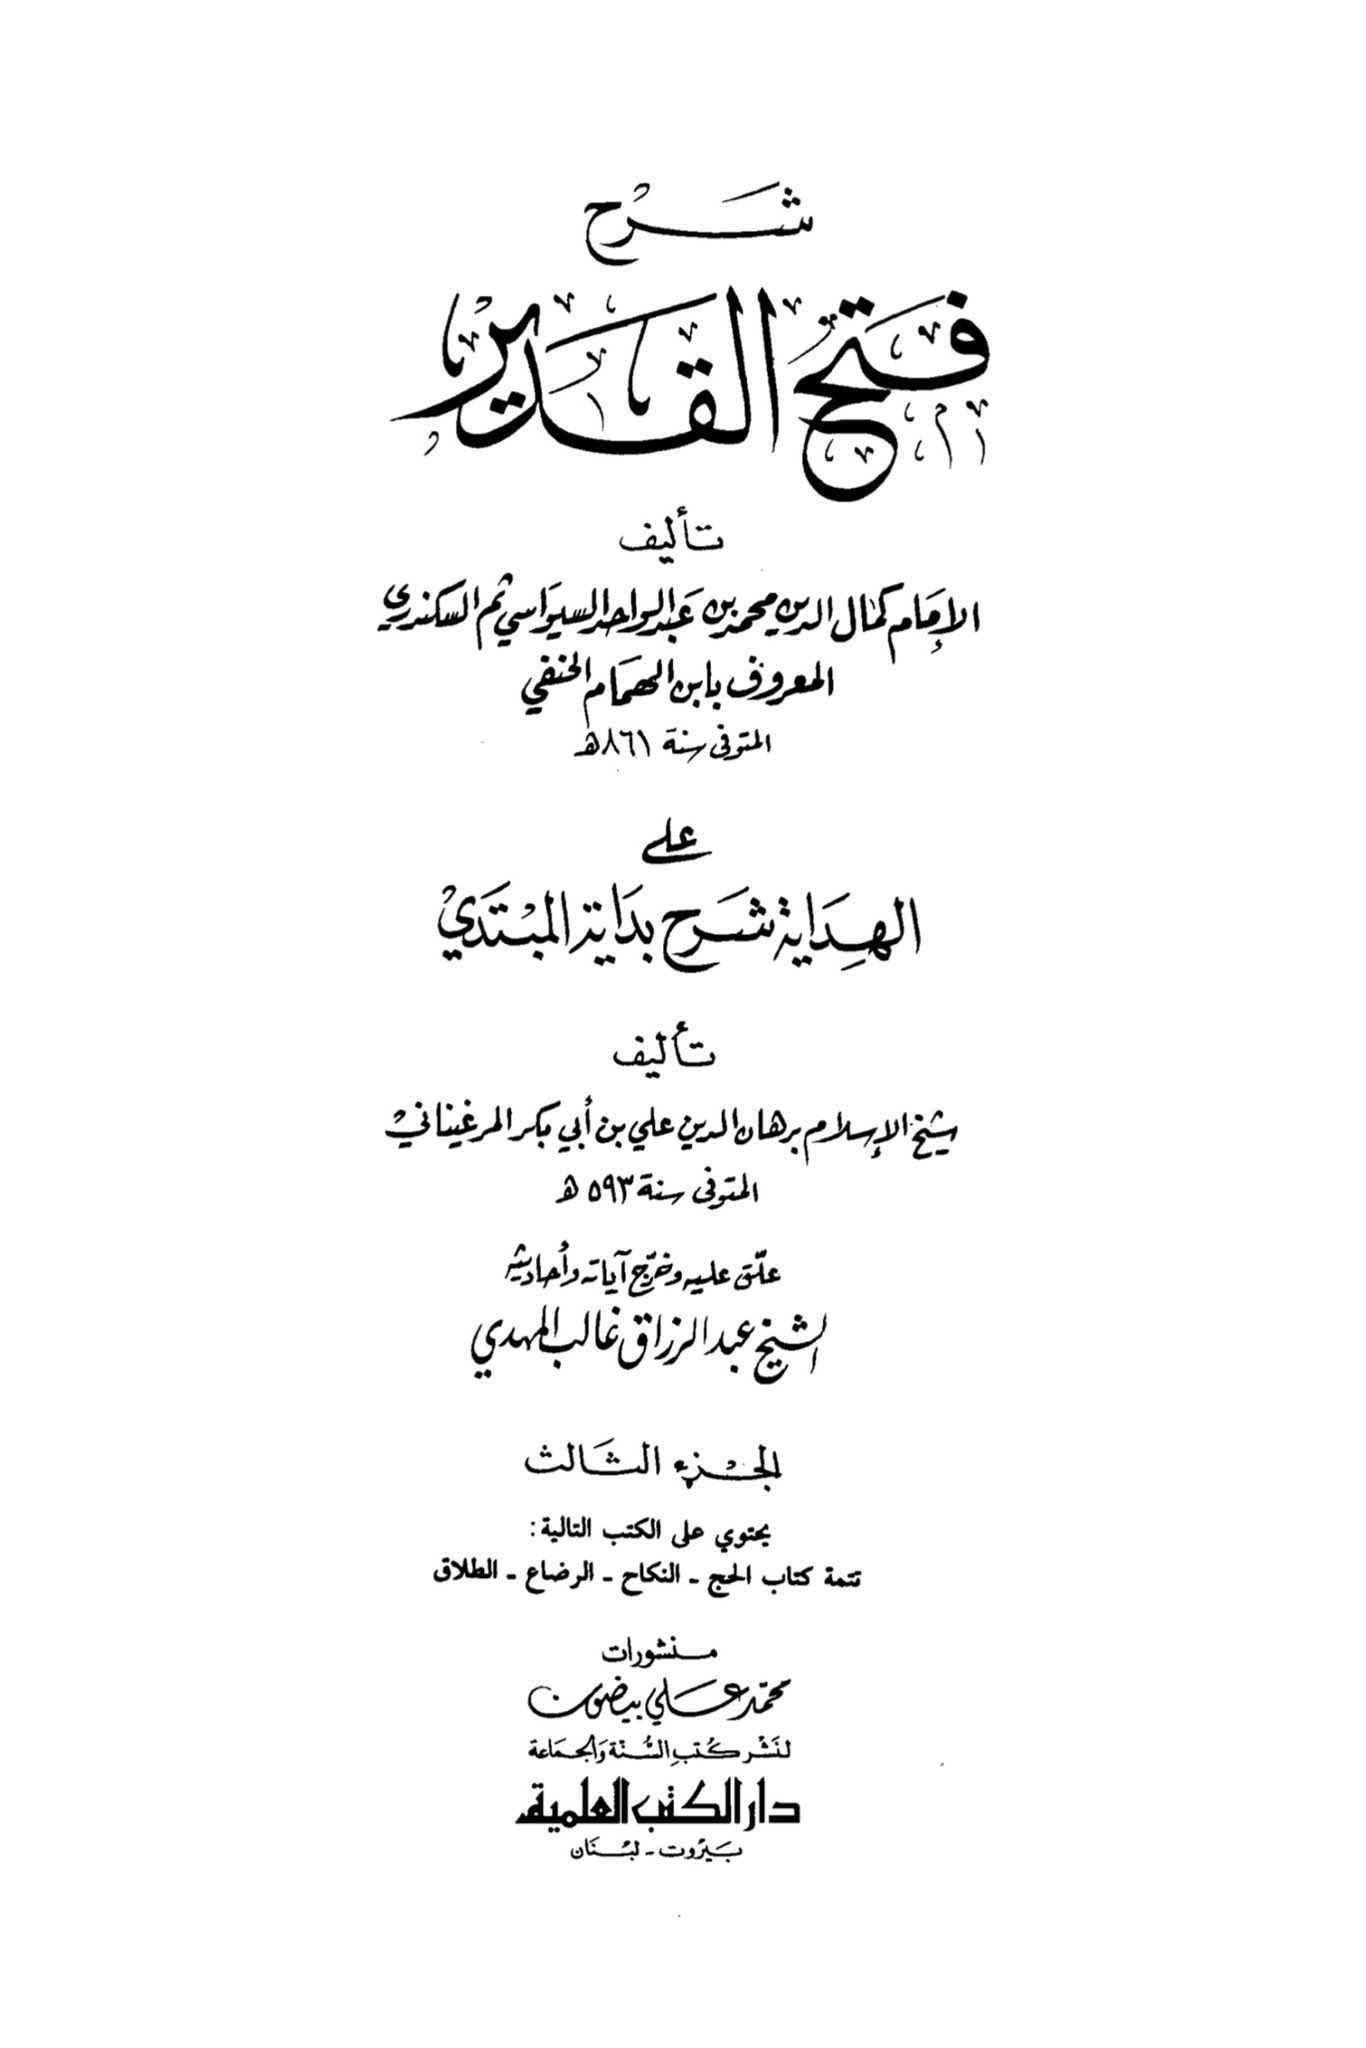 شرح
فتح القدير
تأليف
الإمام كمال الدين محمد بن عبد الواحد السيواسي ثم السكندري
المعروف بابن الهمام الحنفي
المتوفى سنة ٨٦١هـ
على
الهداية شرح بداية المبتدي
تأليف
شيخ الإسلام برهان الدين علي بن أبي بكر المرغيناني
المتوفى سنة ٥٩٣ هـ
علّق عليه وخرّج آياته وأحاديثه
الشيخ عبد الرزاق غالب المهدي
الجزء الثالث
يحتوي على الكتب التالية:
تتمة كتاب الحج - النكاح - الرضاع - الطلاق
منشورات
محمّد علي بيضون
لنشر كتب السنة والجماعة
دار الكتب العلمية
بيروت - لبنان